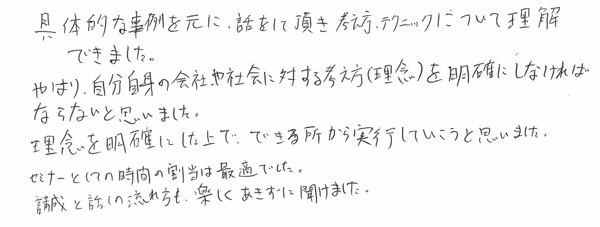 具体的な事例を元に、話をして頂き考え方、テクニックについて理解
できました。
やはり、自分自身の会社や社会に対する考え方(理念)を明確にしなければ
ならないと思いました。
理念を明確にした上で、できる所から実行していこうと思いました。
セミナーとしての時間の割当は最適でした。
構成と話の流れ方も、楽しくあきずに聞けました。